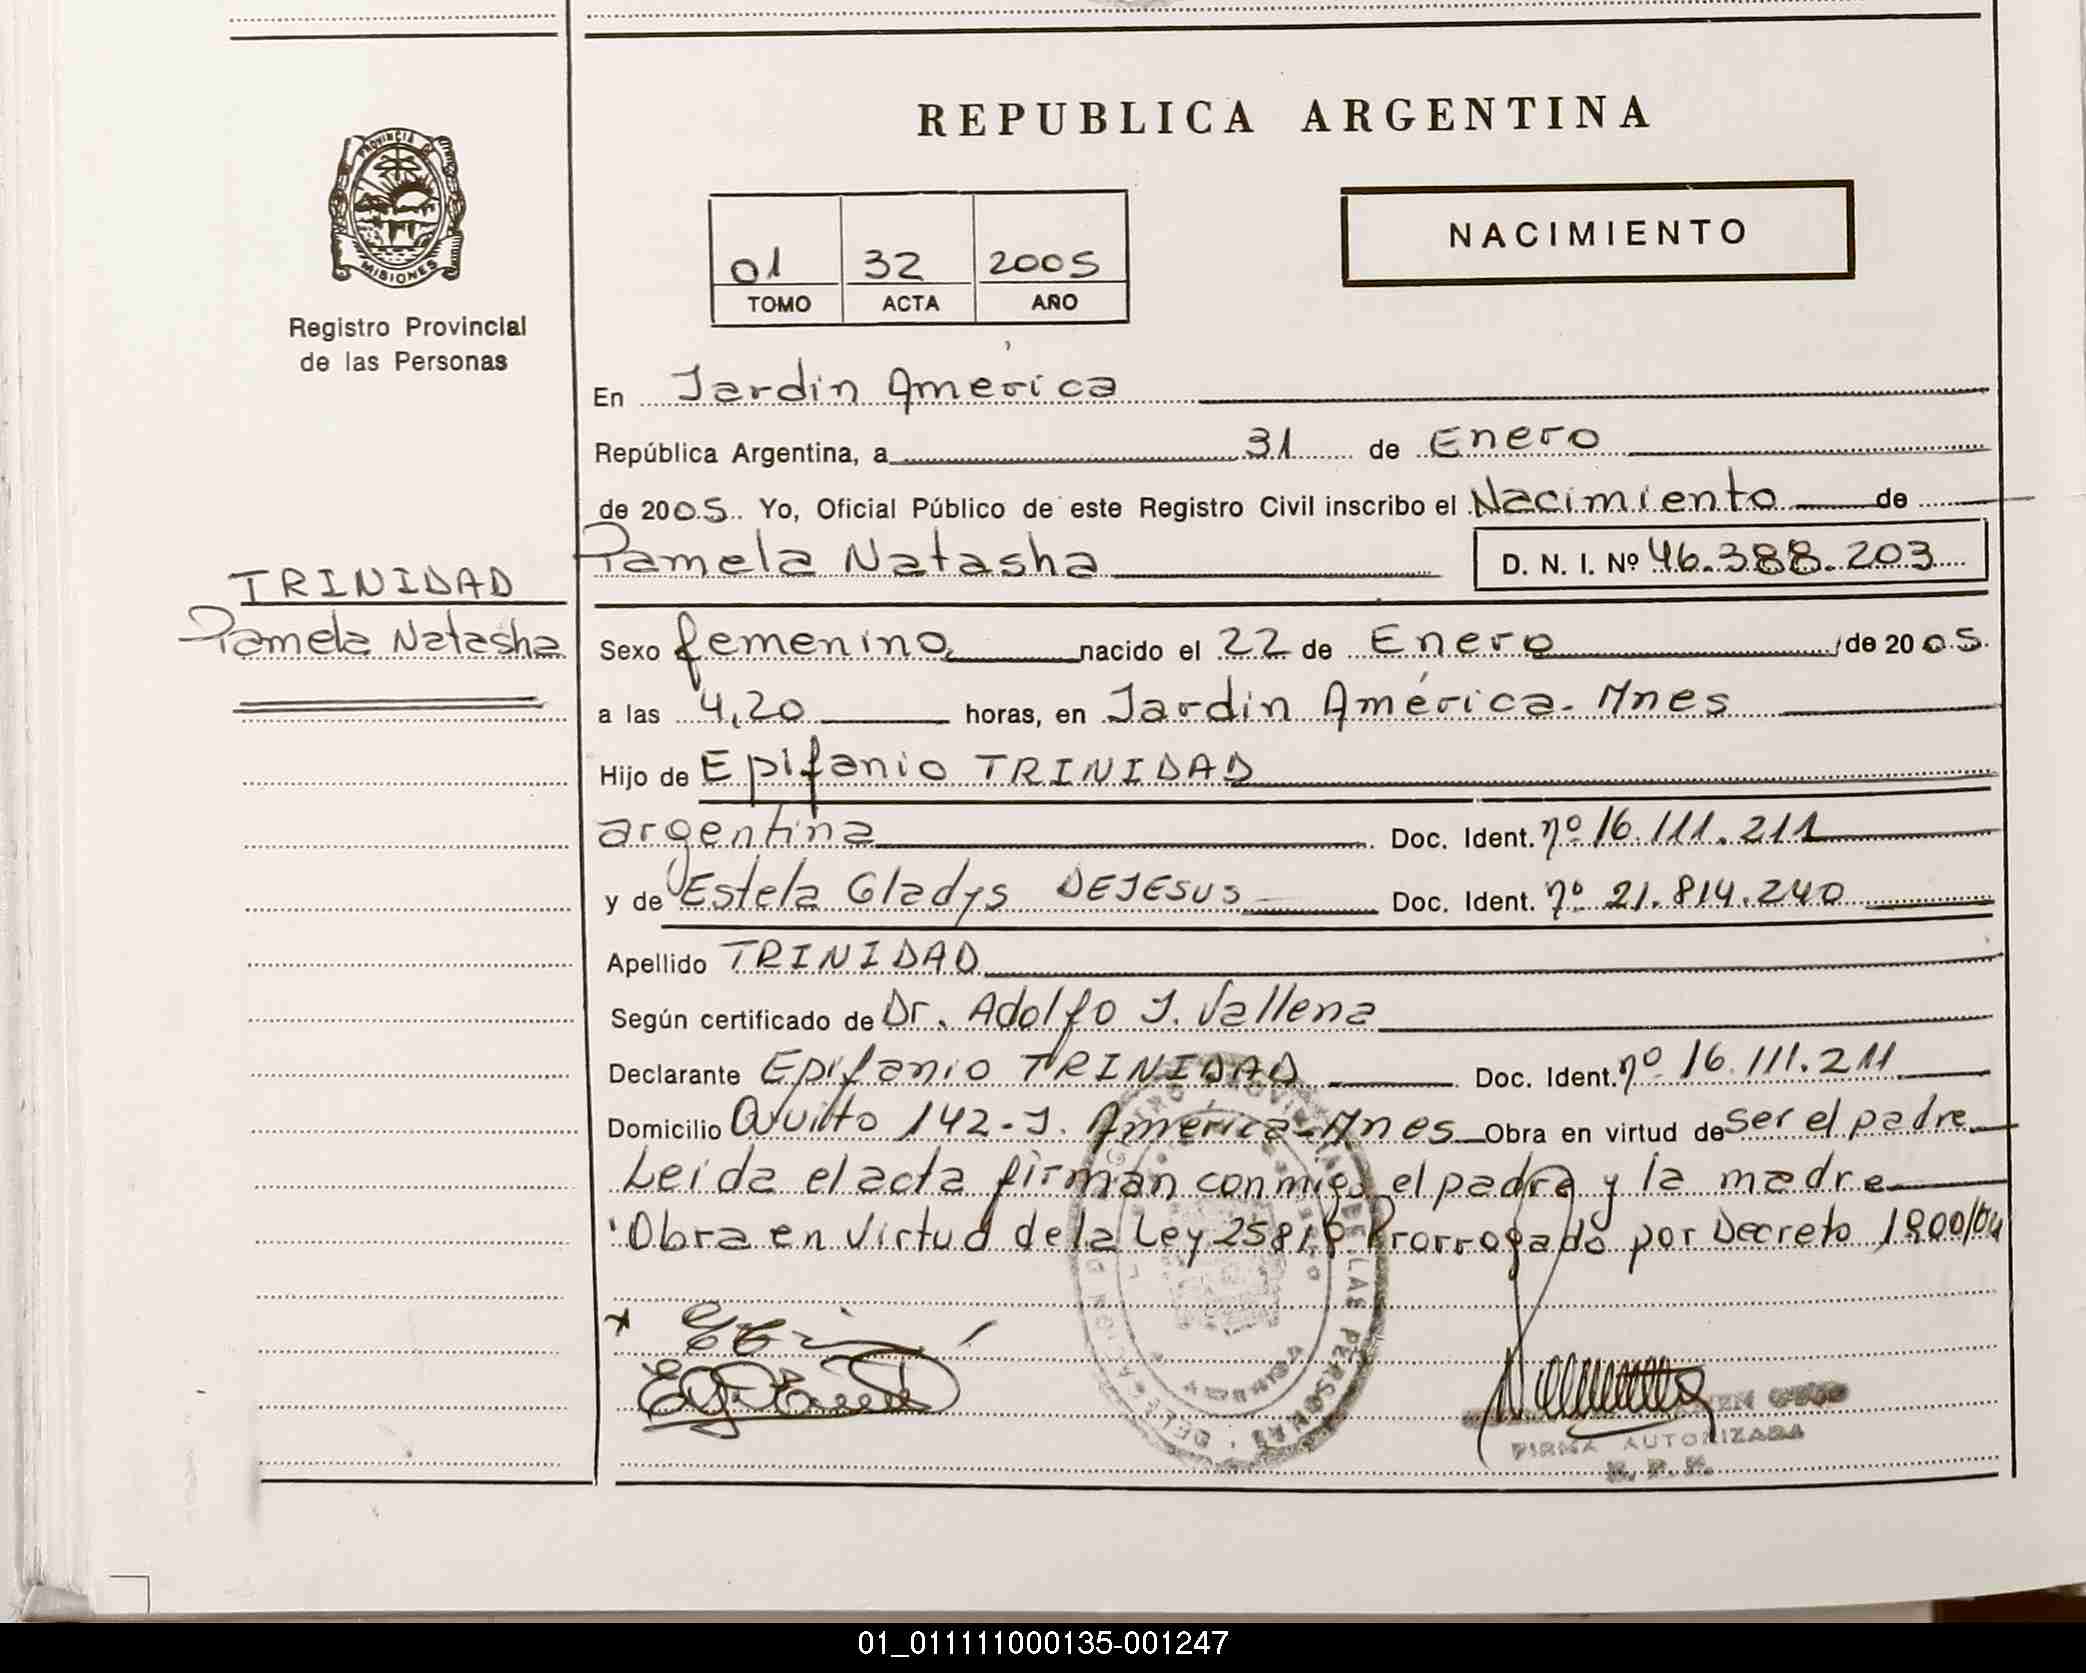 REPUBLICA ARGENTINA
PROVINCIA DE
MISIONES
Registro Provincial
de las Personas
NACIMIENTO
01 32 2005
TOMO ACTA AÑO
En Jardín América
República Argentina, a 31 de Enero
de 2005. Yo, Oficial Público de este Registro Civil inscribo el Nacimiento de
Pamela Natasha D. N. I. Nº 46.388.203
TRINIDAD
Pamela Natasha
Sexo femenino nacido el 22 de Enero de 2005.
a las 4,20 horas, en Jardín América - Mnes
Hijo de Epifanio TRINIDAD
argentina Doc. Ident. nº 16.111.211
y de Estela Gladys DEJESUS Doc. Ident. nº 21.814.240
Apellido TRINIDAD
Según certificado de Dr. Adolfo J. Vallena
Declarante Epifanio TRINIDAD Doc. Ident. nº 16.111.211
Domicilio Quito 142 - J. América - Mnes Obra en virtud de ser el padre
Leida el acta firman conmigo el padre y la madre
Obra en virtud de la Ley 25819 Prorrogado por Decreto 1800/04
DE LAS PERSONAS
FIRMA AUTORIZADA
R. P. P.
01_011111000135-001247